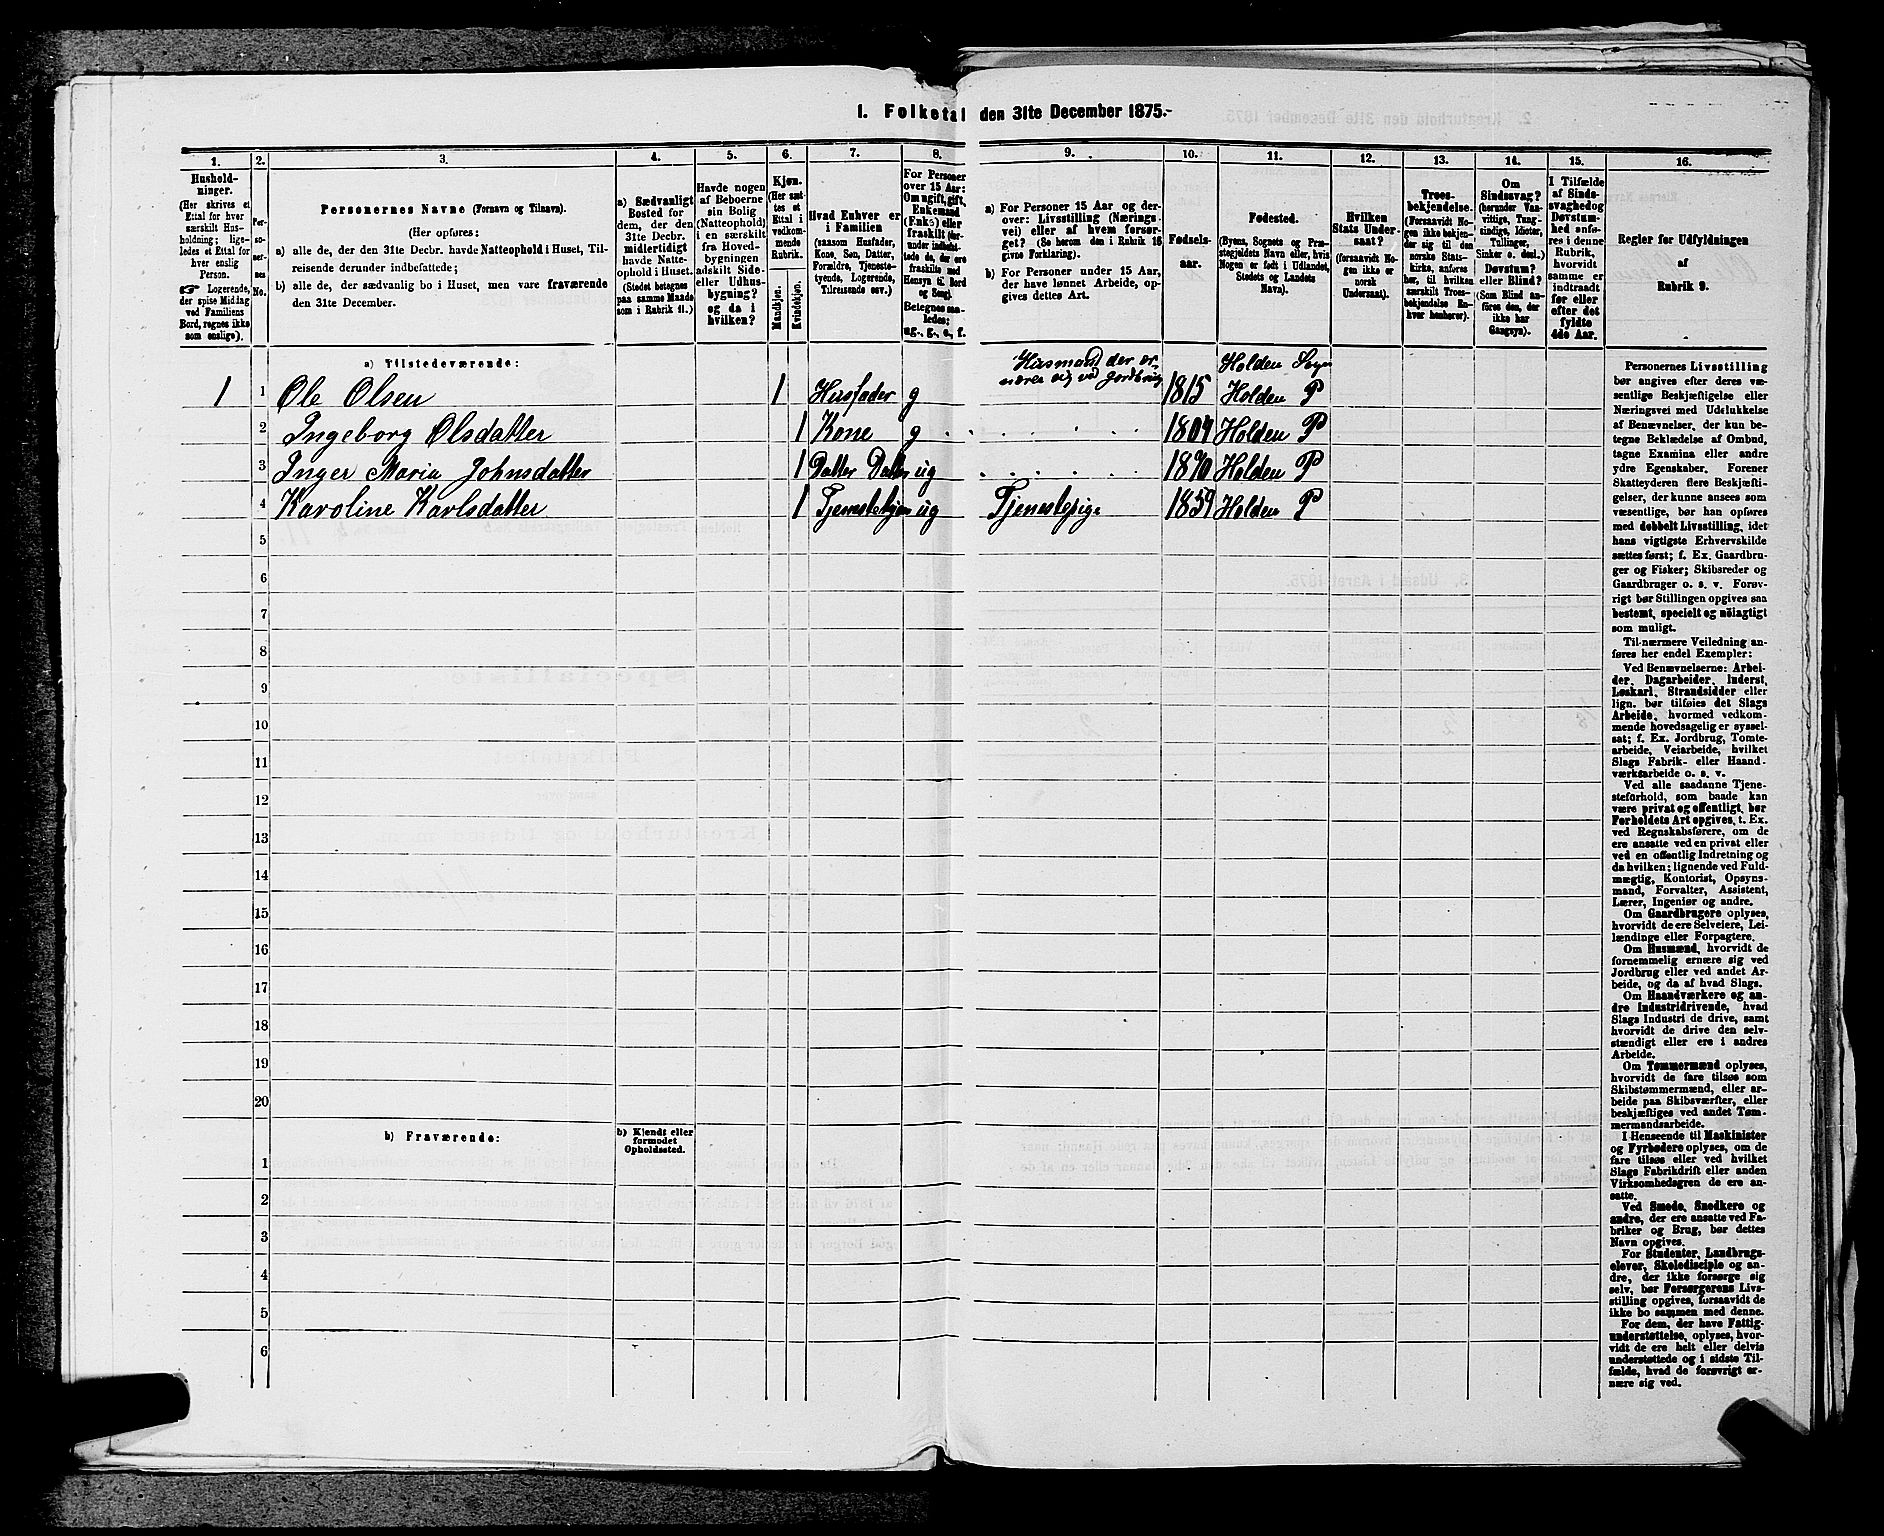 1. Folketal den 31te December 1875.
1.
2.
3.
4.
5.
6.
7.
8.
9.
10.
11.
12.
13.
14.
15.
16.
Husholdninger.
(Her skrives et
Ettal for hver
særskilt Husholdning; ligeledes
et Ettal for
hver enslig
Person.
☞ Logerende,
der spise Middag
ved Familiens
Bord, regnes ikke
som enslige).
Personernes No.
Personernes Navne (Fornavn og Tilnavn).
(Her opføres:
a) alle de, der den 31te Decbr. havde Natteophold i Huset, Tilreisende derunder indbefattede;
b) alle de, der sædvanlig bo i Huset, men vare fraværende
den 31te December.
a) Sædvanligt
Bosted for
dem, der den
31te Decbr.
midlertidigt
havde Natteophold i Huset.
(Stedet betegnes
paa samme Maade
som i Rubrik 11.)
Havde nogen
af Beboerne
sin Bolig
(Natteophold)
i en særskilt
fra Hovedbygningen
adskilt Side-
eller Udhusbygning?
og da i
hvilken?
Kjøn.
(Her sættes et
Ettal i
vedkommende
Rubrik.
Mandkjøn.
Kvindekjøn.
Hvad Enhver er
i Familien
(saasom Husfader,
Kone, Søn, Datter,
Forældre, Tjenestetyende, Logerende,
Tilreisende osv.)
For Personer
over 15 Aar:
Om ugift, gift,
Enkemand
(Enke) eller
fraskilt
Betegnes saaledes:
ug., g., e., f.
a) For Personer 15 Aar og derover: Livsstilling (Næringsvei) eller af hvem forsørget? (Se herom den i Rubrik 16
givne Forklaring).
b) For Personer under 15 Aar,
der have lønnet Arbeide, opgives dettes Art.
Fødselsaar.
Fødested.
(Byens, Sognets og Præstegjeldets Navn eller, hvis
Nogen er født i Udlandet,
Stedets og Landets
Navn).
Hvilken
Stats Undersaat?
(forsaavidt Nogen ikke er
norsk
Undersaat).
Troesbekjendelse.
(Forsaavidt Nogen ikke bekjender sig til den
norske Statskirke, anføres
her, til hvilken
særskilt Troesbekjendelse Enhver henhører).
Om
Sindssvag?
(herunder Vanvittige, Tungsindige, Idioter,
Tullinger,
Sinker o. desl.)
Døvstum?
eller Blind?
(Som Blind anføres den, der
ikke har
Gangsyn).
I Tilfælde
af Sindssvaghed og
Døvstumhed anføres i denne
Rubrik,
hvorvidt
samme er
indtraadt
før eller
efter det
fyldte
4de Aar.
Regler for Udfyldningen
af
Rubrik 9.
a) Tilstedeværende:
Husmand der ernærer sig ved Jordbrug
Holden Sogn
1 1 Ole Olsen 1 Husfader g 1815 Holden P
2 Ingeborg Olsdatter 1 Kone g 1807 Holden P
3 Inger Maria Johnsdatter 1 Datter Datter ug Holden P
4 Karoline Karlsdatter 1 ug Tjenestepige 1859 Holden P
5
6
7
8
9
10
11
12
13
14
15
16
17
18
19
20
b) Fraværende:
b) Kjendt eller
formodet
Opholdssted.
1
2
3
4
5
6
Personernes Livsstilling
bør angives efter deres væsentlige Beskjæftigelse eller
Næringsvei med Udelukkelse
af Benævnelser, der kun betegne Beklædelse af Ombud,
tagne Examina eller andre
ydre Egenskaber. Forener
Skatteyderen flere Beskjæftigelser, der kunne ansees som
væsentlige, bør han opføres
med dobbelt Livsstilling, idet
hans vigtigste Erhvervskilde
sættes først; f. Ex. Gaardbruger og Fisker; Skibsreder og
Gaardbruger o. s. v. Forøvrigt bør Stillingen opgives saa
bestemt, specielt og nöiagtigt
som muligt.
Til nærmere Veiledning anføres her endel Exempler:
Ved Benævnelserne: Arbeider, Dagarbeider, Inderst,
Løskarl, Strandsidder eller
lign. bør tilføies det Slags
Arbeide, hvormed vedkommende hovedsagelig er sysselsat; f. Ex. Jordbrug, Tomtearbeide, Veiarbeide, hvilket
Slags Fabrik- eller Haandværksarbeide o. s. v.
Ved alle saadanne Tjenesteforhold, som baade kan
være privat og offentligt, bør
Forholdets Art opgives, t. Ex.
ved Regnskabsførere, om de
ere ansatte ved en privat eller
ved en offentlig Indretning og
da hvilken; lignende ved Fuldmægtig, Kontorist, Opsynsmand, Forvalter, Assistent,
Lærer, Ingeniør og andre.
Om Gaardbrugere oplyses,
hvorvidt de ere Selveiere, Leilændinge eller Forpagtere.
Om Husmænd, hvorvidt de
fornemmelig ernære sig ved
Jordbrug eller ved andet Arbeide, og da af hvad Slags.
Om Haandværkere og andre Industridrivende, hvad
Slags Industri de drive, samt
hvorvidt de drive den selvstændigt eller ere i andres
Arbeide.
Om Tømmermænd oplyses,
hvorvidt de fare tilsøs som
Skibstømmermænd, eller arbeide paa Skibsværfter, eller
beskjæftiges ved andet Tømmermandsarbeide.
I Henseende til Maskinister
og Fyrbødere oplyses, om de
fare tilsøs eller ved hvilket
Slags Fabrikdrift eller anden
Virksomhedsgren de ere ansatte.
Ved Smede, Snedkere og
andre, der ere ansatte ved Fabriker og Brug, bør dettes
Navn opgives.
For Studenter, Landbrugselever, Skoledisciple og andre, der ikke forsørge sig
selv, bør Forsørgerens Livsstilling opgives, forsaavidt de
ikke bo sammen med denne.
For dem, der have Fattigunderstøttelse, oplyses, hvorvidt de ere helt eller delvis
understøttede og i sidste Tilfælde, hvad de forøvrigt ernære sig ved.